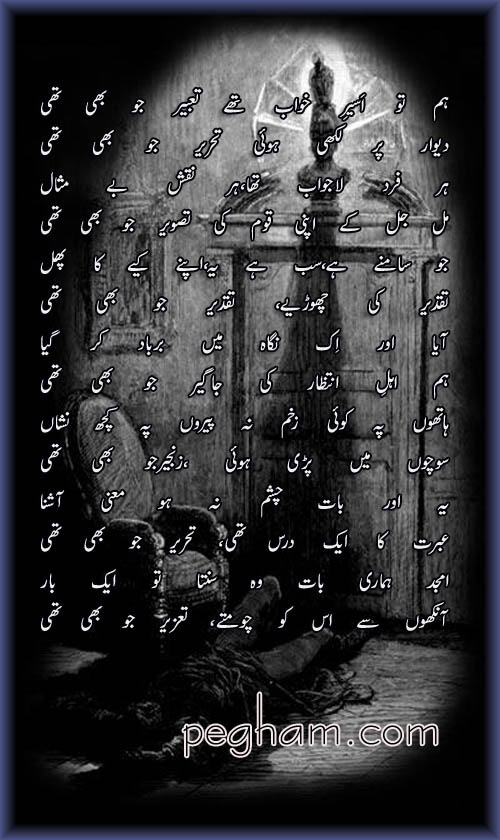 ہم تو اَسیرِ خواب تھے تعبیر جو بھی تھی
دیوار پر لکھی ہوئی تحریر جو بھی تھی
ہر فرد لاجواب تھا،ہر نقش بے مثال
مل جل کے اپنی قوم کی تصویر جو بھی تھی
جو سامنے ہے،سب ہے یہ،اپنے کیے کا پھل
تقدیر کی چھوڑیے، تقدیر جو بھی تھی
آیا اور اِک نگاہ میں برباد کر گیا
ہم اہلِ انتظار کی جاگیر جو بھی تھی
ہاتھوں پہ کوئی زخم نہ پیروں پہ کچھ نشاں
سوچوں میں پڑی ہوئی ،زنجیرجو بھی تھی
یہ اور بات چشم نہ ہو معنی آشنا
عبرت کا ایک درس تھی، تحریر جو بھی تھی
امجد ہماری بات وہ سنتا تو ایک بار
آنکھوں سے اس کو چومتے، تعزیر جو بھی تھی
pegham.com